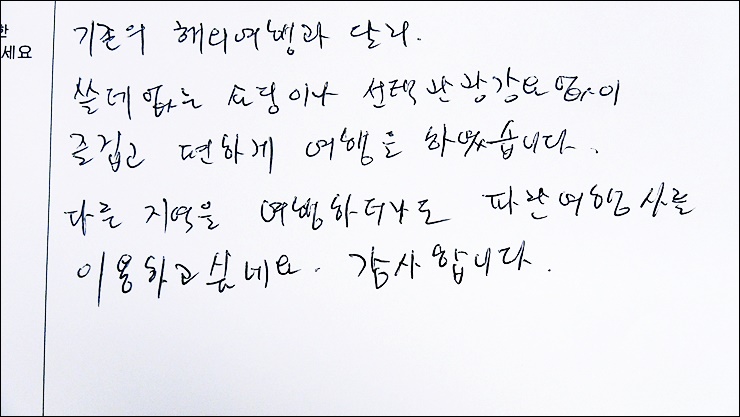 한
세요
기존의 해외여행과 달리.
쓸데없는 쇼핑이나 선택관광강요없이
즐겁고 편하게 여행을 하였습니다.
다른 지역을 여행하더라도 파란여행사를
이용하고싶네요. 감사합니다.